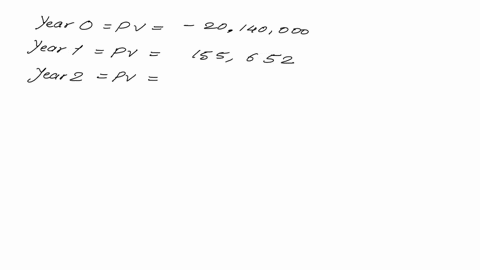 Year 0 = PV = - 20,140,000
Year 1 = PV = 155,652
Year 2 = PV =